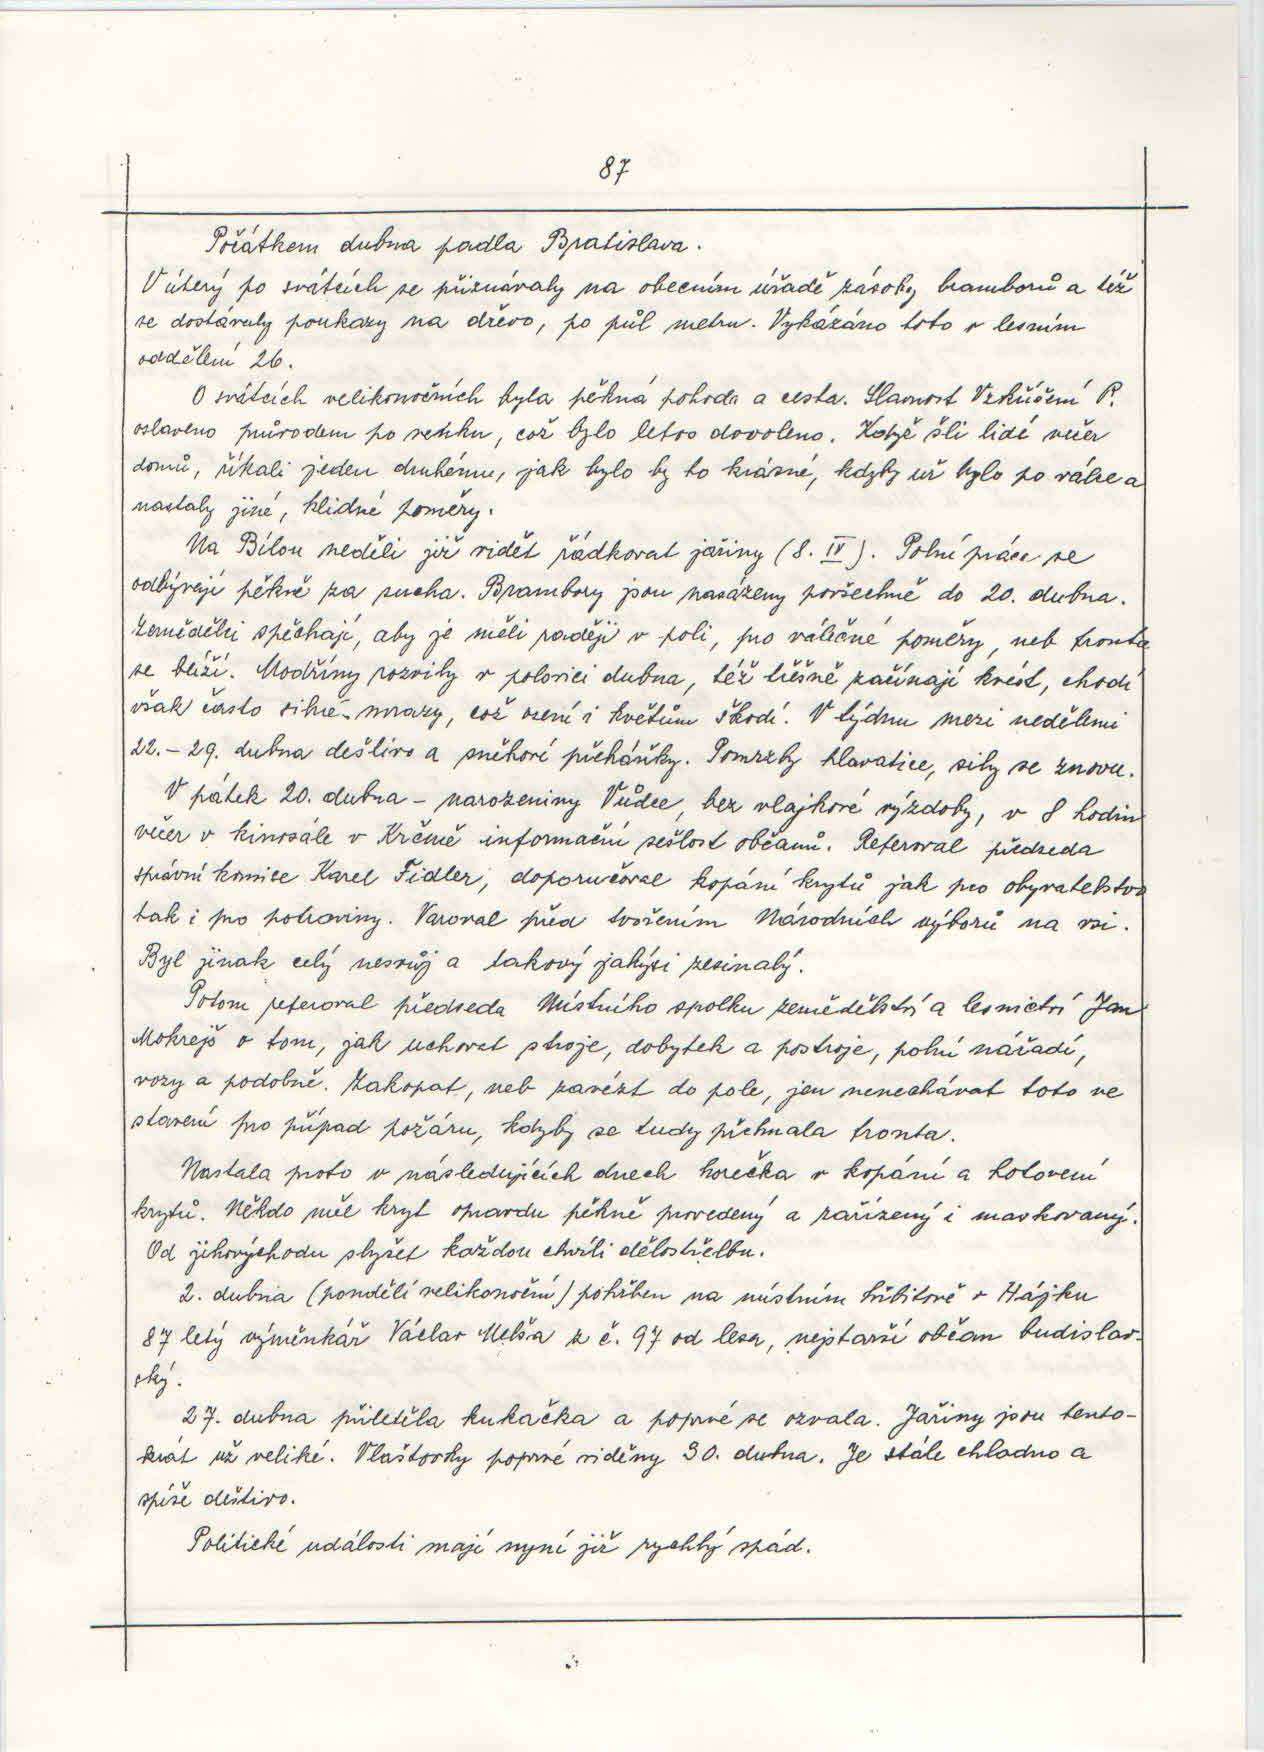 87
Počátkem dubna padla Bratislava.
V úterý po svátcích se přiznávaly na obecním úřadě zásoby bramborů a též
se dostávaly poukazy na dřevo, po půl metru. Vykázáno toto v lesním
oddělení 26.
O svátcích velikonočních byla pěkná pohoda a cesta. Slavnost Vzkříšení P.
oslaveno průvodem po venku, což bylo letos dovoleno. Když šli lidé večer
domů, říkali jeden druhému, jak bylo by to krásné, kdyby už bylo po válce a
nastaly jiné, klidné poměry.
Na Bílou neděli již vidět řádkovat jařiny (8. IV). Polní práce se
odbývají pěkně za sucha. Brambory jsou nasázeny povšechně do 20. dubna.
Zemědělci spěchají, aby je měli raději v poli, pro válečné poměry, neb fronta
se blíží. Modříny rozvily v polovici dubna, též třešně začínají kvést, chodí
však často silné mrazy, což osení i květům škodí. V týdnu mezi nedělemi
22. – 29. dubna deštivo a sněhové přeháňky. Pomrzly hlavatice, sily se znovu.
V pátek 20. dubna – narozeniny Vůdce, bez vlajkové výzdoby, v 8 hodin
večer v kinosále v Krčmě informační sešlost občanů. Referoval předseda
správní komise Karel Fidler, doporučoval kopání krytů jak pro obyvatelstvo
tak i pro potraviny. Varoval před tvořením Národních výborů na vsi.
Byl jinak celý nesvůj a takový jakýsi zesinalý.
Potom referoval předseda Místního spolku zemědělství a lesnictví Jan
Mokrejš o tom, jak uchovat stroje, dobytek a postroje, polní nářadí,
vozy a podobně. Zakopat, neb zavézt do pole, jen nenechávat toto ve
stavení pro případ požáru, kdyby se tudy přehnala fronta.
Nastala proto v následujících dnech horečka v kopání a hotovení
krytů. Někdo měl kryt opravdu pěkně provedený a zařízený i maskovaný.
Od jihovýchodu slyšet každou chvíli dělostřelbu.
2. dubna (pondělí velikonoční) pohřben na místním hřbitově v Hájku
87 letý výměnkář Václav Melša z č. 97 od lesa, nejstarší občan budislav-
ský.
27. dubna přiletěla kukačka a poprvé se ozvala. Jařiny jsou tento-
krát už veliké. Vlaštovky poprvé viděny 30. dubna. Je stále chladno a
spíše deštivo.
Politické události mají nyní již rychlý spád.